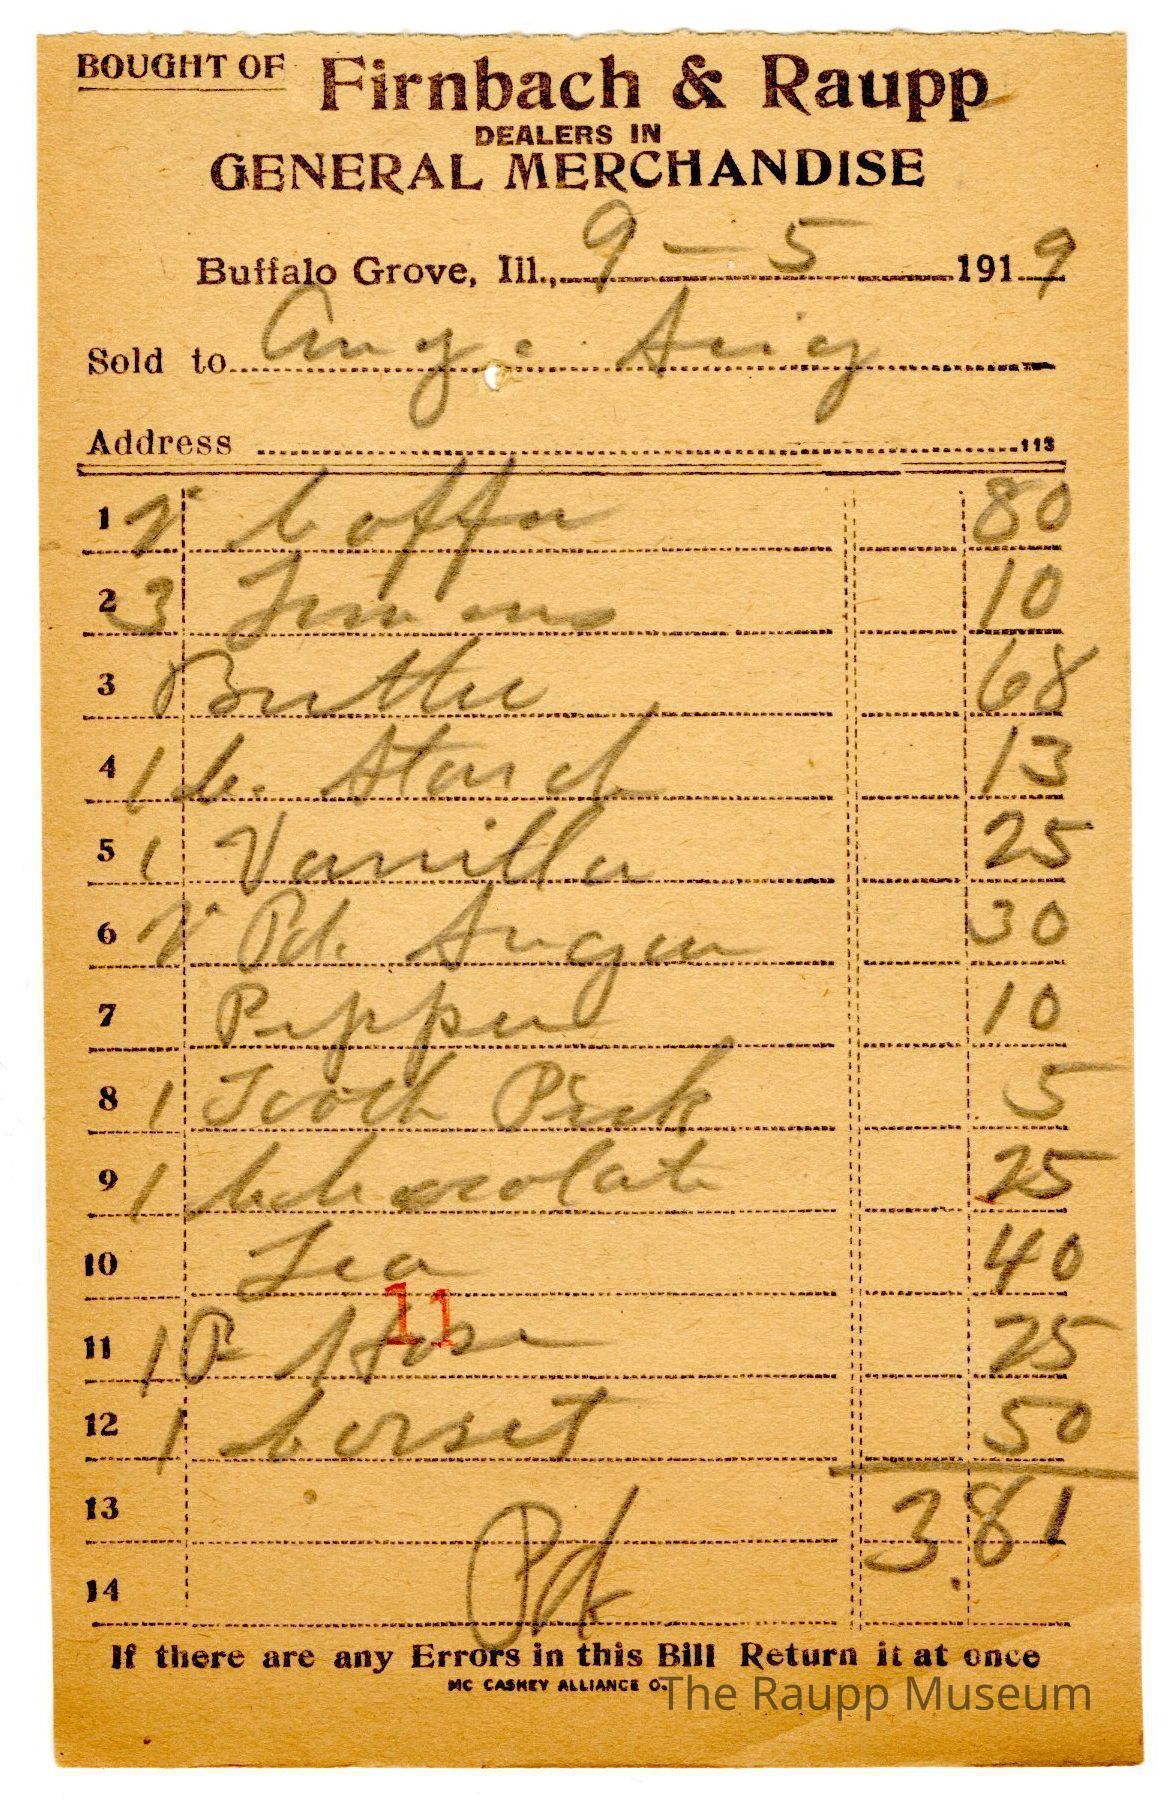 BOUGHT OF Firnbach & Raupp
DEALERS IN
GENERAL MERCHANDISE
Buffalo Grove, Ill., 9-5 1919
Sold to Aug.
Address 113
1 2 Coffee 80
2 3 Lemons 10
3 Butter 68
4 1 Starch 13
5 1 Vanilla 25
6 2 Pd. Sugar 30
7 Pepper 10
8 1 Tooth Pick 5
9 1 Chocolate 25
10 Tea 40
11 1 Pr Hose 25
11
12 1 Corset 50
13 3.81
14 Pd
If there are any Errors in this Bill Return it at once
MC CASKEY ALLIANCE O.
The Raupp Museum